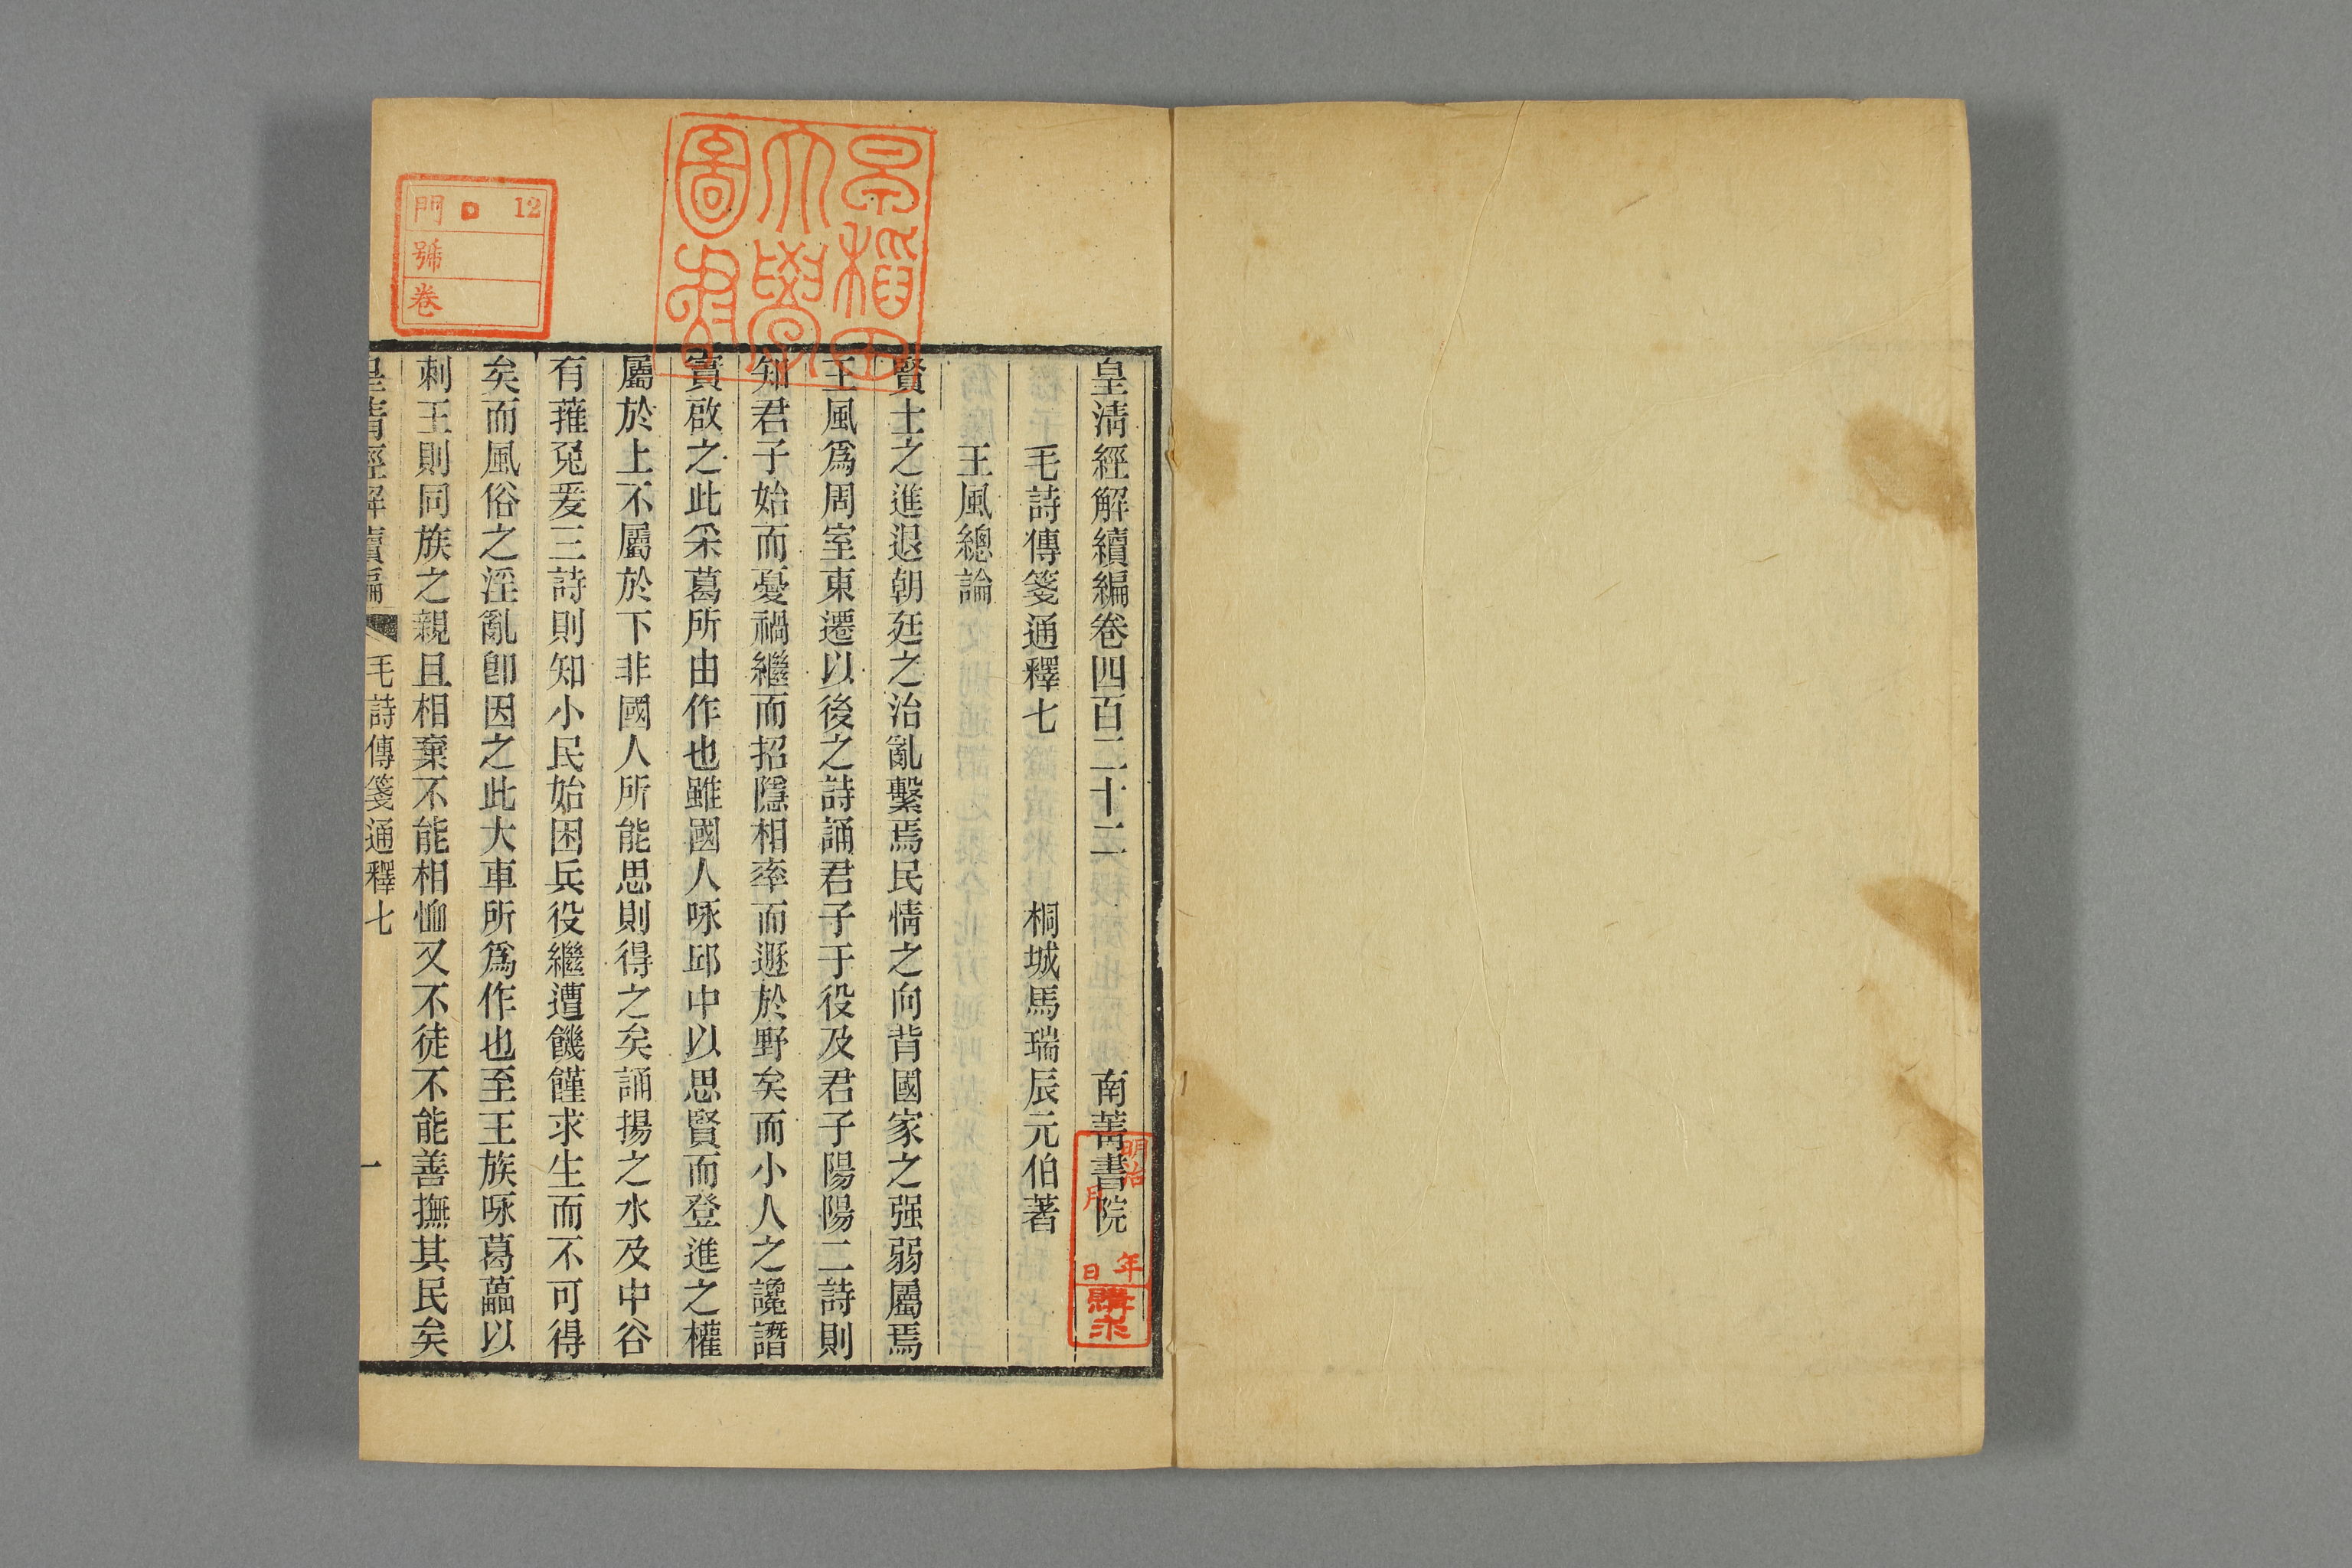 皇清經解續編卷四百二十二 南菁書院
毛詩傳箋通釋七 桐城馬瑞辰元伯著
王風總論
賢士之進退朝廷之治亂繫焉民情之向背國家之强弱屬焉
王風爲周室東遷以後之詩誦君子于役及君子陽陽二詩則
知君子始而憂禍繼而招隱相率而遯於野矣而小人之讒譖
實啟之此采葛所由作也雖國人咏邱中以思賢而登進之權
屬於上不屬於下非國人所能思則得之矣誦揚之水及中谷
有蓷兔爰三詩則知小民始困兵役繼遭饑饉求生而不可得
矣而風俗之淫亂卽因之此大車所爲作也至王族咏葛藟以
刺王則同族之親且相棄不能相恤又不徒不能善撫其民矣
皇清經解續編 毛詩傳箋通釋七 一
早稻田
大學
圖書
門 ロ 12
號
卷
明治 年
月 日
購求